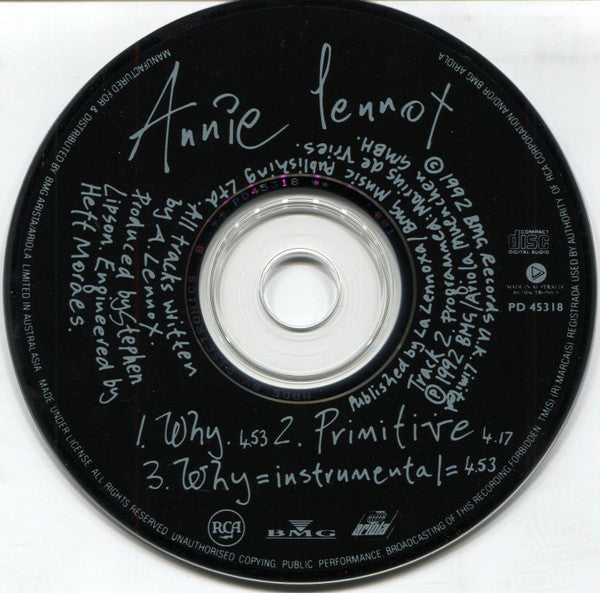 Annie Lennox
All tracks written
by A. Lennox
Produced by Stephen
Lipson Engineered by
Heff Moraes.
Published by La Lennoxa/BMG Music Publishing Ltd.
Track 2. Programmer: Marius de Vries.
℗1992 BMG/Ariola Muenchen GMBH.
©1992 BMG Records U.K. Limited
COMPACT
disc
DIGITAL AUDIO
MADE IN AUSTRALIA
BY DISCTRONICS
PD 45318
1. Why. 4.53 2. Primitive 4.17
3. Why = instrumental = 4.53
RCA
BMG
ariola
MANUFACTURED FOR & DISTRIBUTED BY BMG ARISTA/ARIOLA LIMITED IN AUSTRALASIA. MADE UNDER LICENSE. ALL RIGHTS RESERVED. UNAUTHORISED COPYING, PUBLIC PERFORMANCE, BROADCASTING OF THIS RECORDING FORBIDDEN. TM(S) (R) MARCA(S) REGISTRADA USED BY AUTHORITY OF RCA CORPORATION AND/OR BMG ARIOLA
** PD45318 **